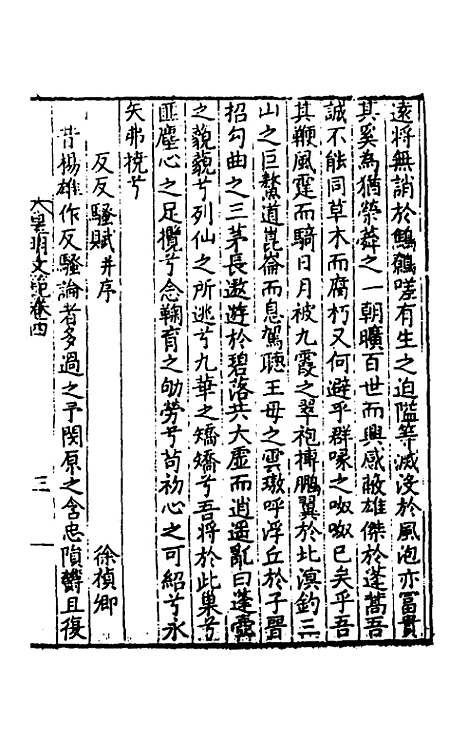 遠將無誚於鷦鷯嗟有生之迫隘等滅沒於風泡亦富貴
其奚為猶榮蕣之一朝曠百世而興感蔽雄傑於蓬蒿吾
誠不能同草木而腐朽又何避乎群喙之呶呶已矣乎吾
其鞭風霆而騎日月被九霞之翠袍摶鵬翼於北溟釣三
山之巨鰲道崑崙而息駕聽王母之雲璈呼浮丘於子晉
招勾曲之三茅長遨遊於碧落共大虛而逍遥亂曰蓬壺
之藐藐兮列仙之所逃兮九華之矯矯兮吾將於此巢兮
匪塵心之足攬兮念鞠育之劬勞兮苟初心之可紹兮永
矢弗撓兮
反反騷賦并序 徐楨卿
昔楊雄作反騷論者多過之予閔原之含忠隕欝且復
大皇明文範卷四 三